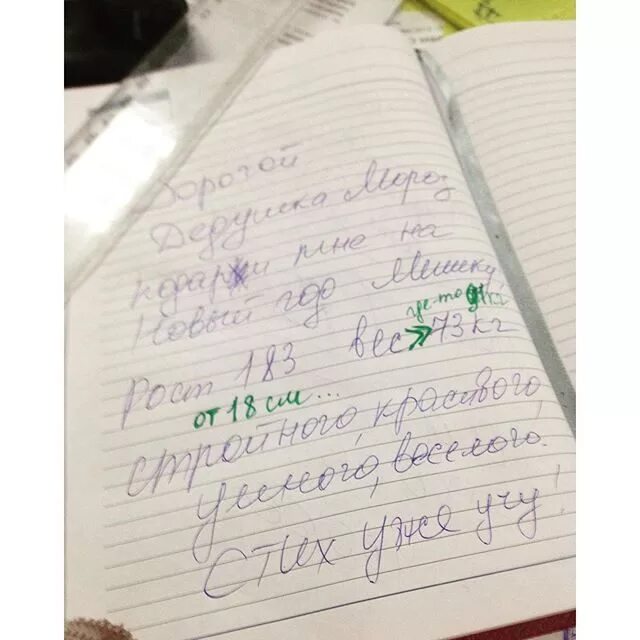 Дорогой
Дедушка Мороз
подари мне на
Новый годо Мишку
где-то 91кг
Рост 183 вес 73 кг
от 18 см...
стройного, красивого,
умного, веселого.
Стих уже учу!